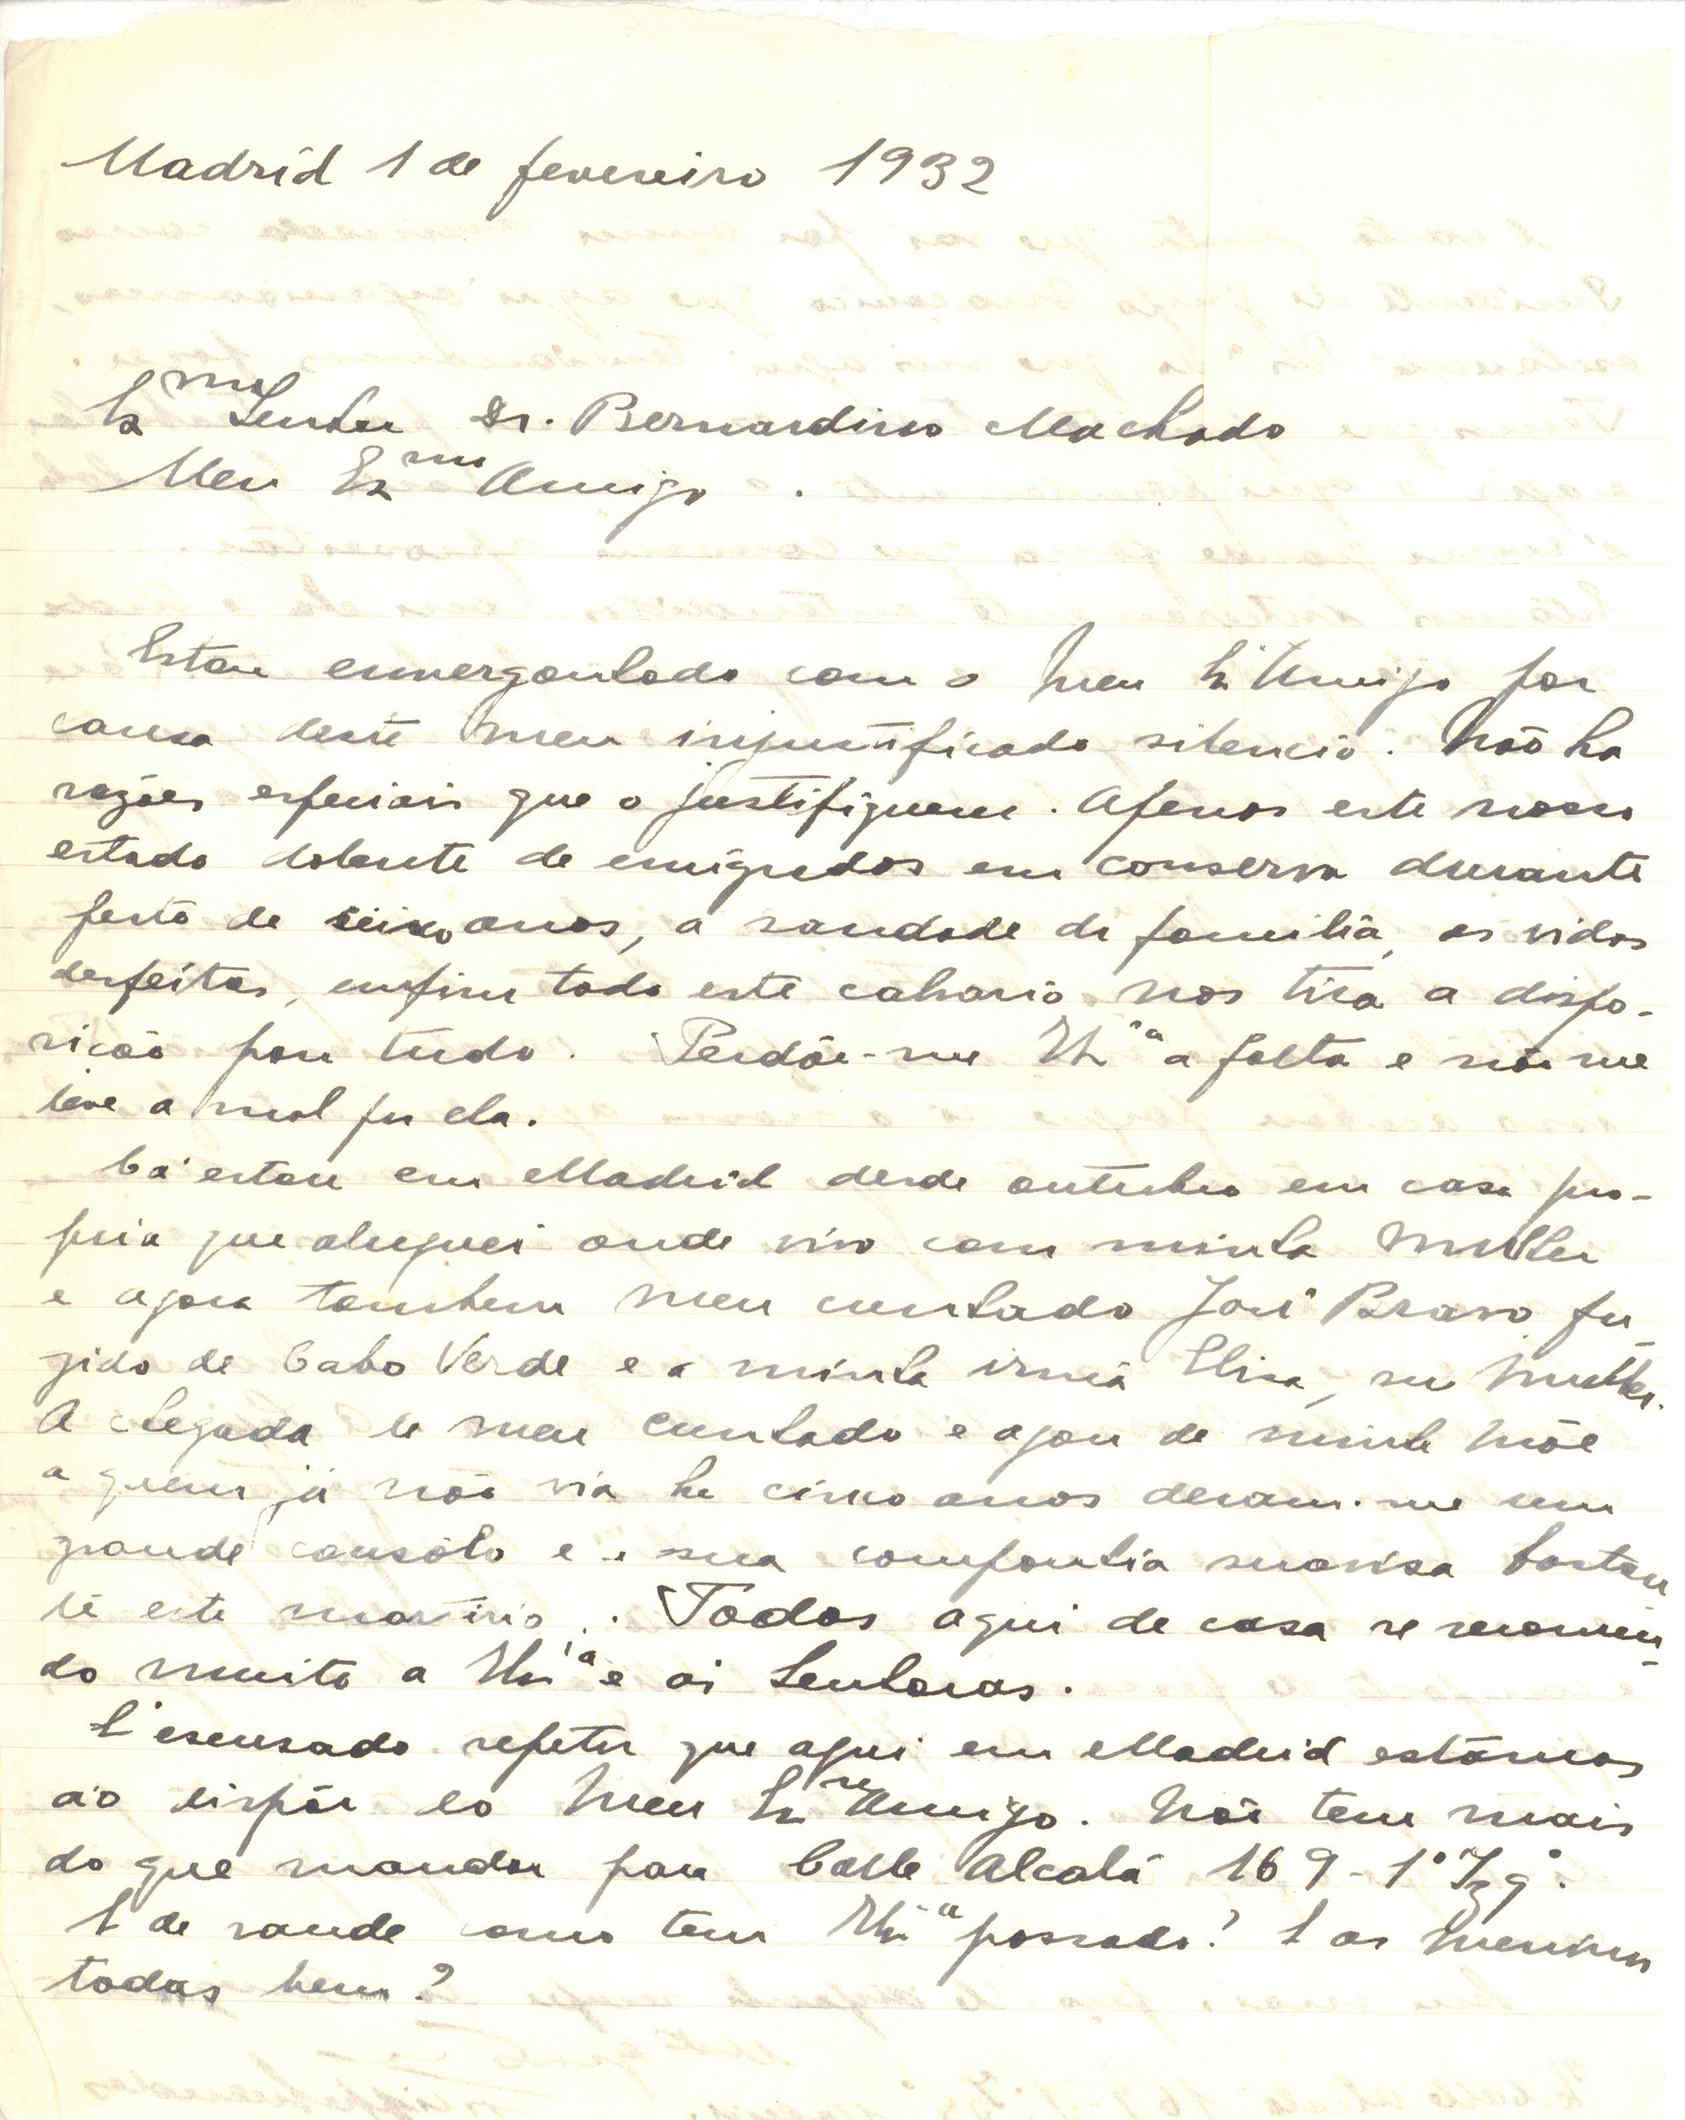 Madrid 1 de fevereiro 1932
Ex.mo Senhor Dr. Bernardino Machado
Meu Ex.mo Amigo.
Estou envergonhado com o meu Ex.º Amigo por
causa deste meu injustificado silencio. Não ha
razões especiais que o justifiquem. Apenas este nosso
estado dolente de emigrados em conserva durante
perto de cinco anos, a saudade da familia, as vidas
desfeitas, emfim todo este calvario nos tira a dispo-
sicão para tudo. Perdõe-me V. Ex.ª a falta e não me
leve a mal por ela.
Cá estou em Madrid desde outubro em casa pro-
pria que aluguei onde vivo com minha mulher
e agora tambem meu cunhado José Bravo fu-
gido de Cabo Verde e a minha irmã Elisa, sua mulher.
A chegada de meu cunhado e agora de minha mãe
a quem já não via ha cinco anos deram-me um
grande consôlo e a sua companhia suavisa bastan-
te este martirio. Todos aqui de casa se recomen-
do muito a V. Ex.ª e ás Senhoras.
E' escusado repetir que aqui em Madrid estâmos
ao dispôr do meu Ex.mo Amigo. Não tem mais
do que mandar para Calle Alcalá 169-1º Izqº.
E de saude como tem V. Ex.ª passado? E as meninas
todas bem?